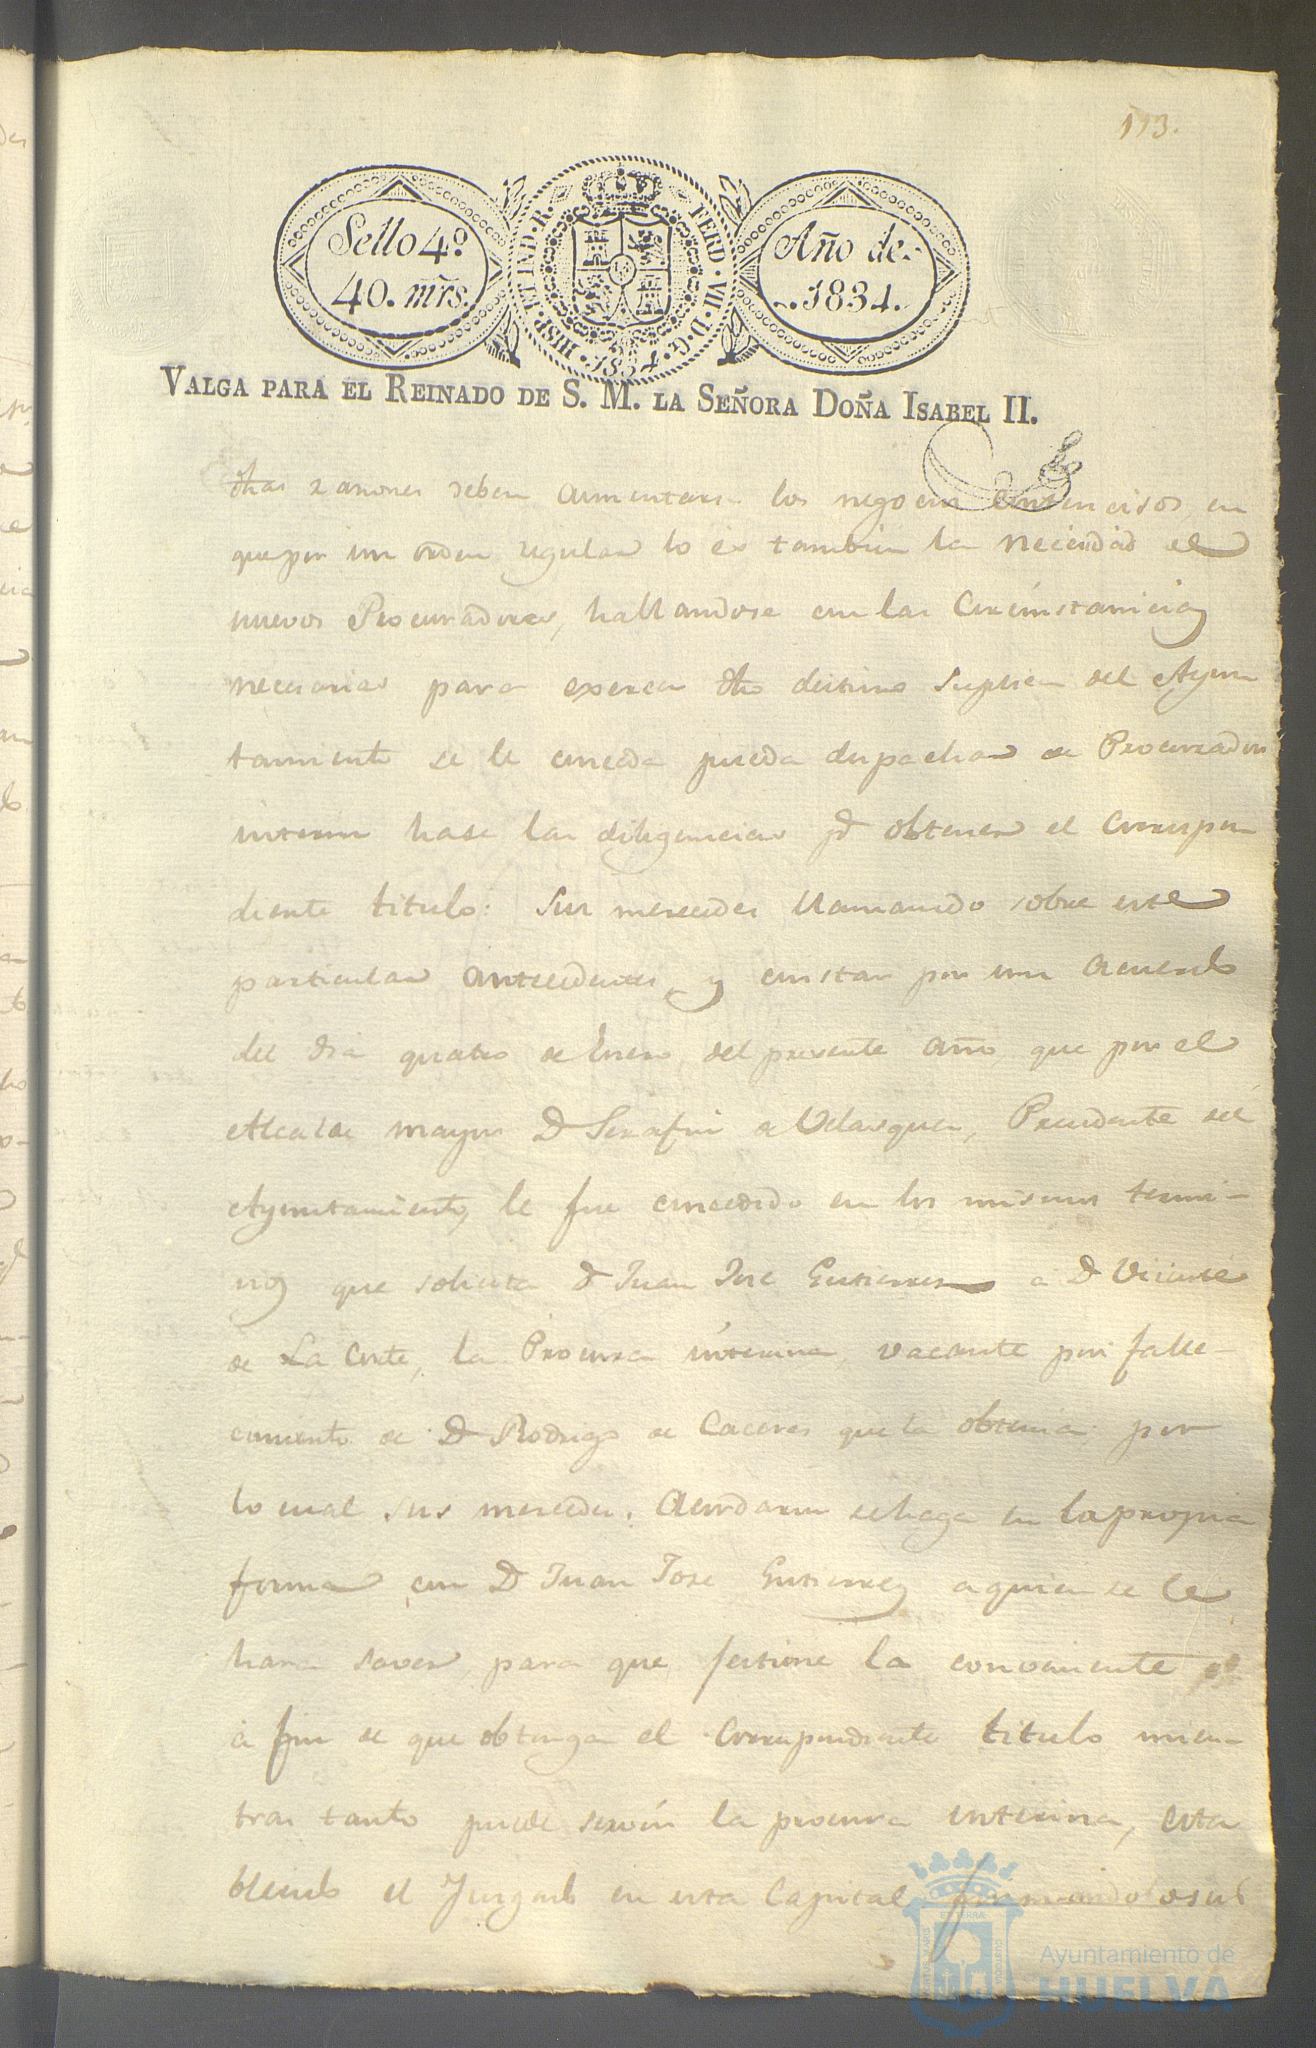 113.
Sello 4º
40. mrs.
HISP. ET IND. R. FERD. VII. D. G. 1834.
Año de
1834.
VALGA PARA EL REINADO DE S. M. LA SEÑORA DOÑA ISABEL II.
dhas razones deben aumentarse los negocios contenciosos, en
que por un orden regular lo es tambien la necesidad de
nuevos Procuradores, hallandose en las Circunstancias
necesarias para exercer dho destino suplica del Ayun
tamiento se le conceda pueda despachar de Procurador
interin hase las diligencias pª obtener el correspon
diente titulo: Sus mercedes llamando sobre este
particular antecedentes, y constar por un acuerdo
del dia quatro de Enero, del presente año, que por el
Alcalde mayor D Serafin de Velasquez, Presidente del
Ayuntamiento, le fue concedido en los mismos termi-
nos que solicita D Juan José Gutierrez a D Vicente
de La Corte, la Procura interina, vacante por falle-
cimiento de D Rodrigo de Caceres que la obtenia; por
lo cual sus mercedes. Acordaron se haga en la propia
forma con D Juan Jose Gutierrez a quien se le
hara saver, para que gestione la conveniente
a fin de que obtenga el correspondiente titulo mien-
tras tanto puede servir la procura interina, esta
blecido el Juzgado en esta Capital firmandolo sus
Ayuntamiento de
HUELVA